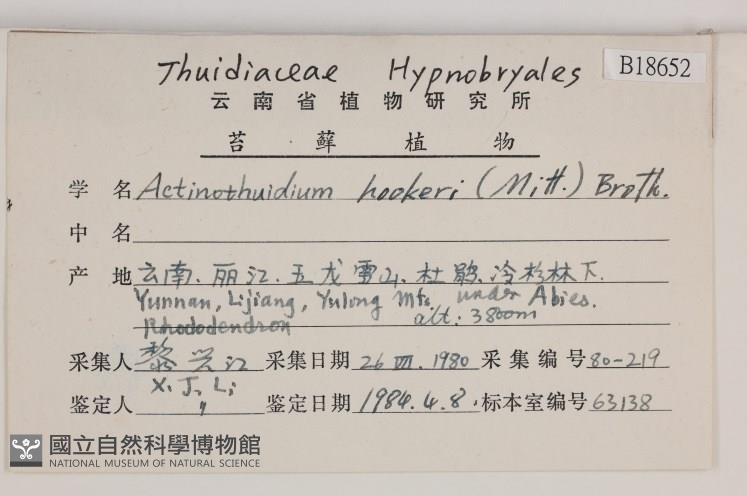 Thuidiaceae Hypnobryales B18652
云南省植物研究所
苔藓植物
学名 Actinothuidium hookeri (Mitt.) Broth.
中名
产地 云南、丽江、玉龙雪山、杜鹃、冷杉林下.
Yunnan, Lijiang, Yulong Mts, under Abies.
Rhododendron alt: 3800m
采集人 黎兴江 采集日期 26 VII. 1980 采集编号 80-219
X. J. Li
鉴定人 〃 鉴定日期 1984.4.8 标本室编号 63138
國立自然科學博物館
NATIONAL MUSEUM OF NATURAL SCIENCE